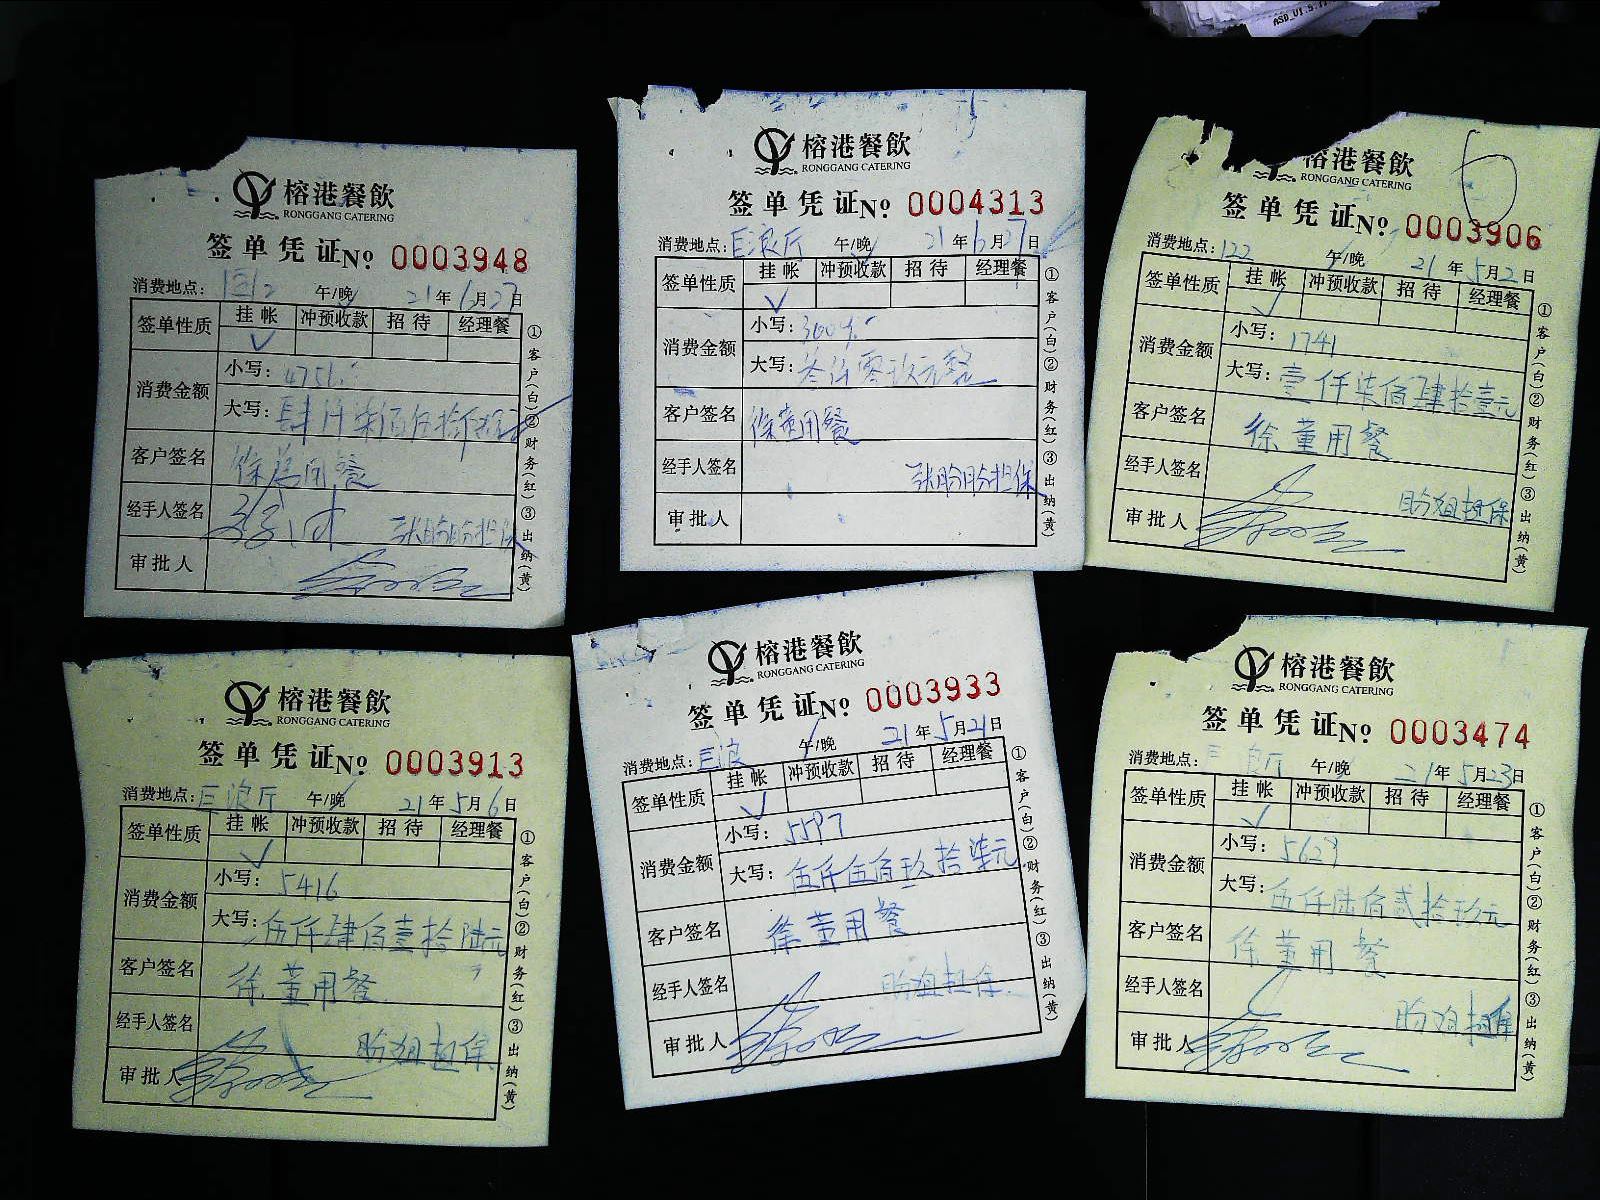 ASD_V1.5.1
榕港餐飲
RONGGANG CATERING
签单凭证№ 0003948
消费地点: 午/晚 21年6月27日
签单性质 挂帐 冲预收款 招待 经理餐
消费金额 小写: 4751
大写: 肆仟柒佰伍拾
客户签名 徐董用餐
经手人签名 张盼盼担保
审批人
①客户(白)②财务(红)③出纳(黄)
榕港餐飲
RONGGANG CATERING
签单凭证№ 0004313
消费地点: 巨浪厅 午/晚 21年6月27日
签单性质 挂帐 冲预收款 招待 经理餐
消费金额 小写: 3009
大写: 叁仟零玖元整
客户签名 徐董用餐
经手人签名 张盼盼担保
审批人
①客户(白)②财务(红)③出纳(黄)
榕港餐飲
RONGGANG CATERING
签单凭证№ 0003906
消费地点: 122 午/晚 21年5月2日
签单性质 挂帐 冲预收款 招待 经理餐
消费金额 小写: 1741
大写: 壹仟柒佰肆拾壹元
客户签名 徐董用餐
经手人签名 盼姐担保
审批人
①客户(白)②财务(红)③出纳(黄)
榕港餐飲
RONGGANG CATERING
签单凭证№ 0003913
消费地点: 巨浪厅 午/晚 21年5月6日
签单性质 挂帐 冲预收款 招待 经理餐
消费金额 小写: 5416
大写: 伍仟肆佰壹拾陆元
客户签名 徐董用餐
经手人签名 盼姐担保
审批人
①客户(白)②财务(红)③出纳(黄)
榕港餐飲
RONGGANG CATERING
签单凭证№ 0003933
消费地点: 巨浪 午/晚 21年5月21日
签单性质 挂帐 冲预收款 招待 经理餐
消费金额 小写: 5597
大写: 伍仟伍佰玖拾柒元
客户签名 徐董用餐
经手人签名 盼姐担保
审批人
①客户(白)②财务(红)③出纳(黄)
榕港餐飲
RONGGANG CATERING
签单凭证№ 0003474
消费地点: 巨浪厅 午/晚 21年5月23日
签单性质 挂帐 冲预收款 招待 经理餐
消费金额 小写: 5629
大写: 伍仟陆佰贰拾玖元
客户签名 徐董用餐
经手人签名 盼姐担保
审批人
①客户(白)②财务(红)③出纳(黄)